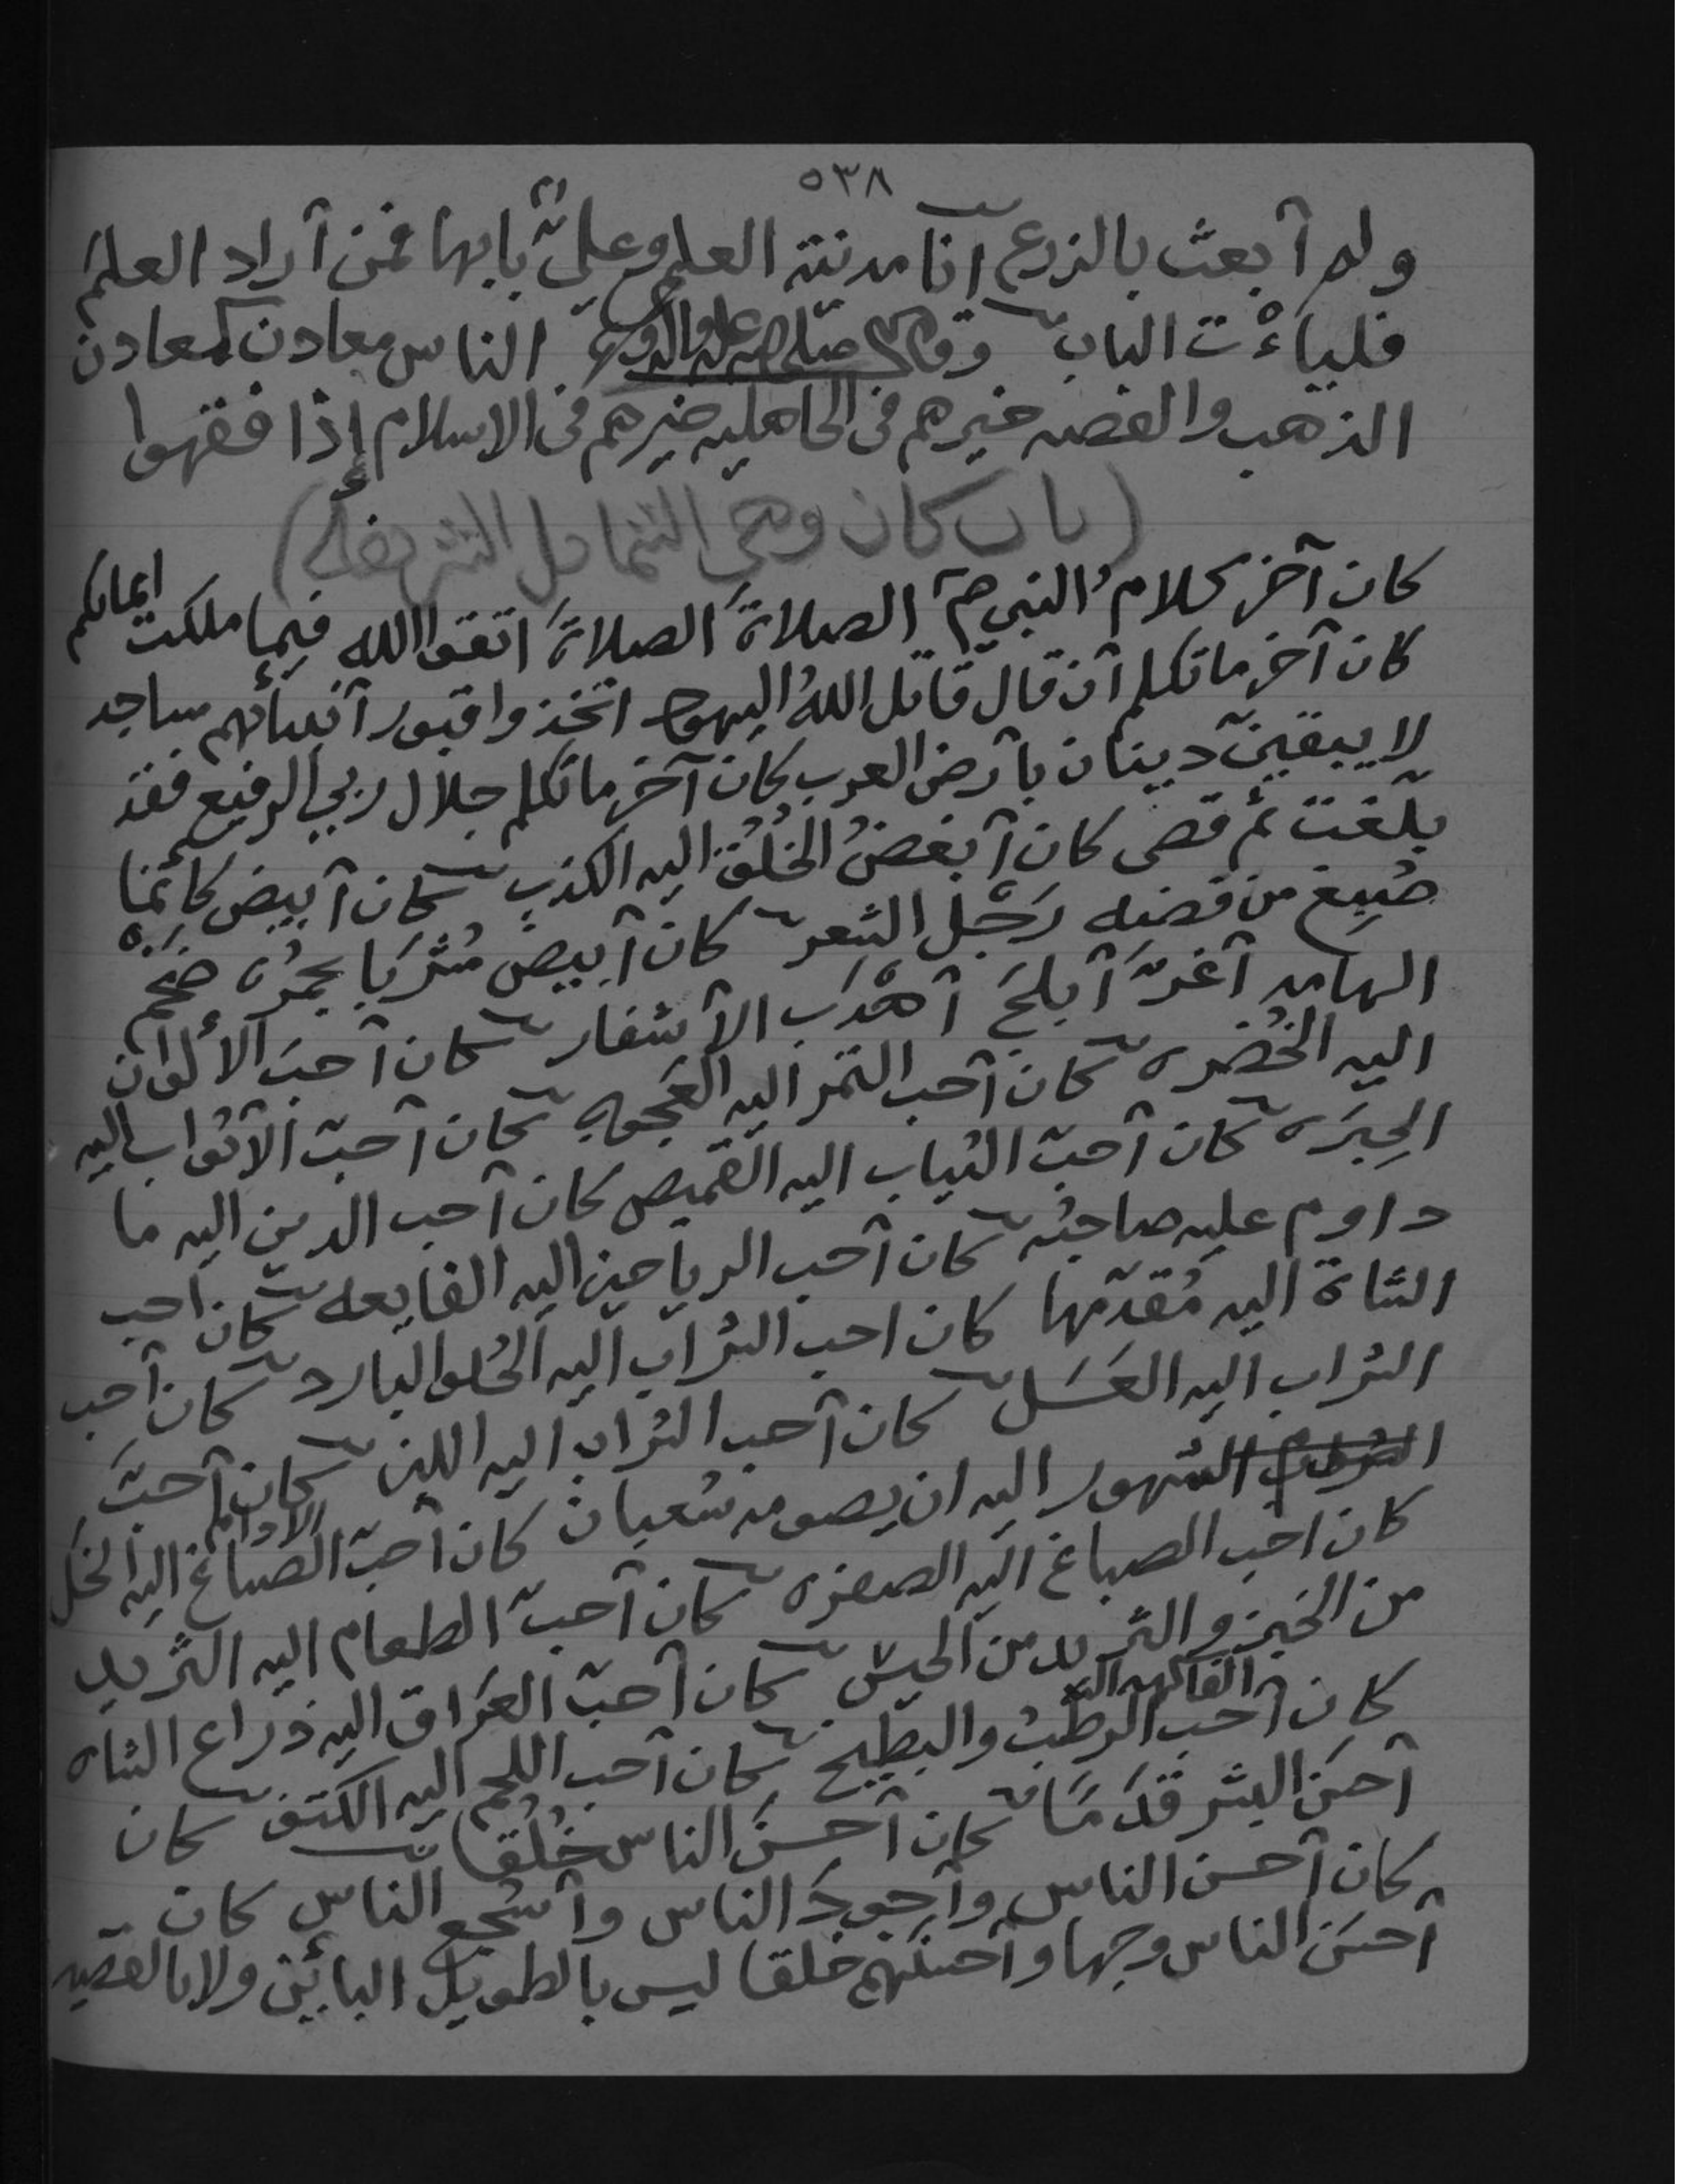 ٥٣٨
ولم أبعث بالزرع أنا مدينة العلم وعليّ بابها فمن أراد العلمَ
فلياءْت الباب وقال صلى الله عليه وآله وسلم الناس معادن كمعادن
الذهب والفضه خيرهم في الجاهليه خيرهم في الاسلام إذا فقهوا
(باب كان وهي الشمائل الشريفة)
كان آخر كلام النبي ص الصلاةَ الصلاةَ اتقوا الله فيما ملكت ايمانكم
كان آخر ما تكلم أن قال قاتل اللهُ اليهود اتخذوا قبور أنبيائهم مساجد
لا يبقينّ دينان بأرض العرب كان آخر ما تكلم جلال ربي الرفيع فقد
بلّغت ثم قضى كان أبغضُ الخُلُق اليه الكذب كان أبيض كأنما
صُيغ من فضه رَجْل الشعر كان أبيض مُشْرَبا بحمرُه ضخم
الهامه أغرّ أبلجَ أهْدَب الأشفار كان أحبَ الألوان
اليه الخُضره كان أحب التمر اليه العجوه كان أحبّ الأثواب اليه
الحِبَرَه كان أحبّ الثياب اليه القميص كان أحب الدين اليه ما
داوم عليه صاحبُه كان أحب الرياحين اليه الفايعه كان أحب
الشاة اليه مُقدّمها كان احب الشراب اليه الحُلو البارد كان أحب
الشراب اليه العَسَل كان أحب الشراب اليه اللبن كان أحبَّ
الشهور اليه ان يصومه شعبان كان أحبّ الصباغ اليه الخَل
كان احب الصباغ اليه الصفره كان أحبّ الطعام اليه الثريد
من الخبز والثريد من الحيش كان أحبّ العُراق اليه ذراع الشاه
كان أحب الفاكهه اليه الرطبُ والبطيخ كان أحب اللحم اليه الكتف كان
أحسَن البشر قَدَمًا كان أحسنَ الناس خُلُقا
كان أحسن الناس وأجودَ الناس وأشجع الناس كان
أحسَن الناس وجها وأحسنَهم خلقا ليس بالطويل البائن ولا بالقصير